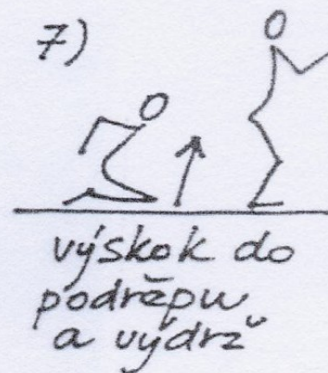 7)
výskok do
podřěpu
a výdrž